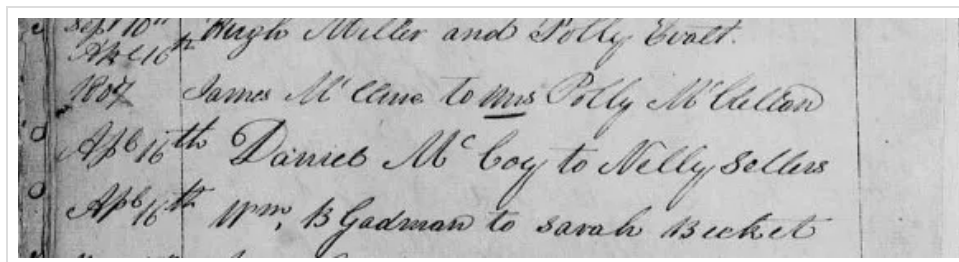 Sept 10th Hugh Miller and Polly Evalt.
Apl 16th
1807 James McClure to Mrs Polly McClellan
Apl 16th Daniel McCoy to Nelly Sellers
Apl 16th Wm, B Gadman to Sarah Becket